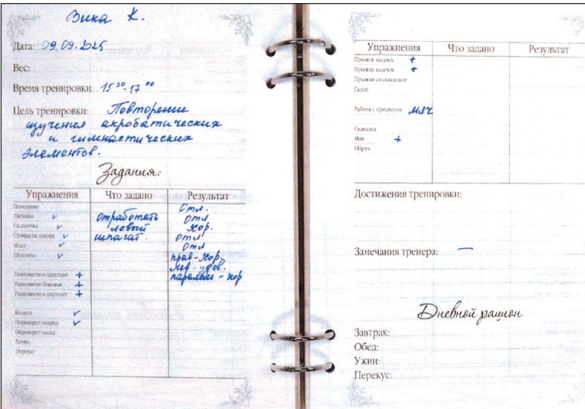 Вика К.
Дата: 09.09.2025
Вес:
Время тренировки: 15³⁰-17⁰⁰
Цель тренировки: Повторение
изучения акробатических
и гимнастических
элементов.
Задания:
Упражнения Что задано Результат
отл.
Лягушка ✓ отработать отл
Складочка ✓ левый хор.
Стойка на лопатках ✓ шпагат. отл
Мост ✓ отл
Шпагаты ✓ прав-хор.
лев-удов.
Равновесие в арабеске + паралле-хор
Равновесие боковое +
Равновесие в +
Колесо ✓
Переворот вперед ✓
Переворот назад
Упражнения Что задано Результат
Прыжки +
Прыжки +
Прыжки со скакалкой
Работа с предметом: мяч
Скакалка
Мяч +
Обруч
Достижения тренировки:
Замечания тренера: —
Дневной рацион
Завтрак:
Обед:
Ужин:
Перекус: